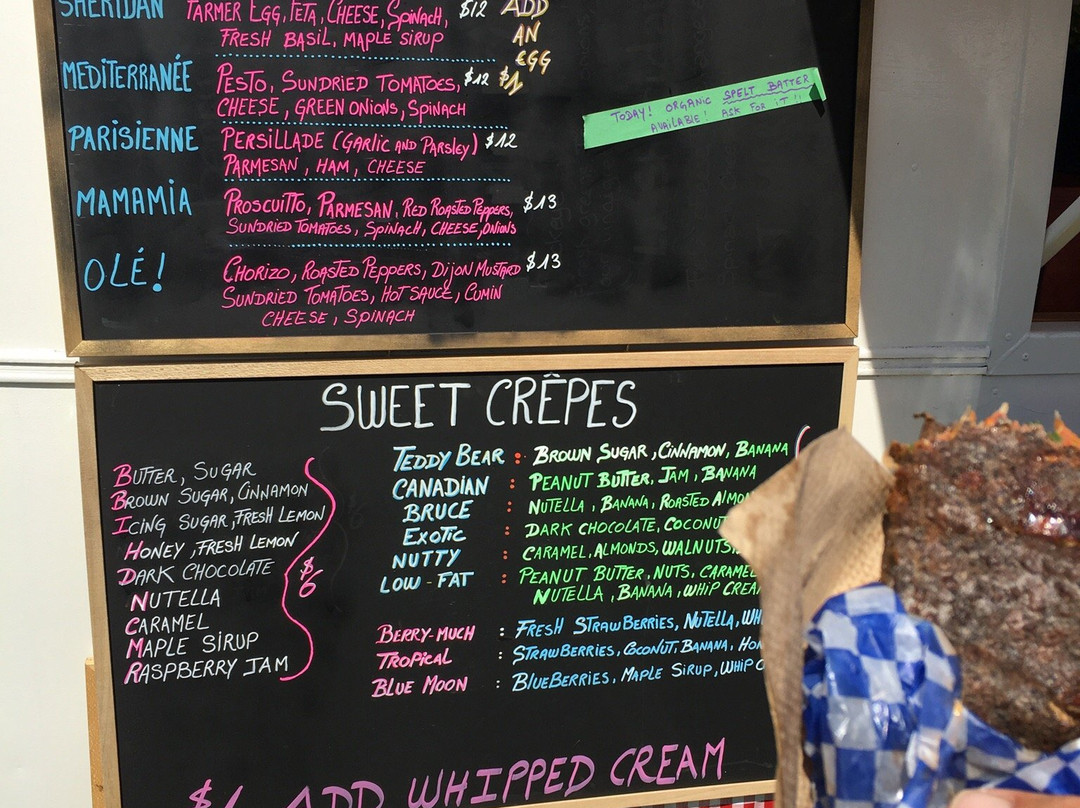 SHERIDAN
FARMER EGG, FETA, CHEESE, SPINACH, $12
FRESH BASIL, MAPLE SIRUP
ADD
AN
EGG
$1
MEDITERRANÉE
PESTO, SUNDRIED TOMATOES, $12
CHEESE, GREEN ONIONS, SPINACH
TODAY! ORGANIC SPELT BATTER
AVAILABLE! ASK FOR IT!!
PARISIENNE
PERSILLADE (GARLIC AND PARSLEY) $12
PARMESAN, HAM, CHEESE
MAMAMIA
PROSCUITTO, PARMESAN, RED ROASTED PEPPERS, $13
SUNDRIED TOMATOES, SPINACH, CHEESE, ONIONS
OLÉ!
CHORIZO, ROASTED PEPPERS, DIJON MUSTARD $13
SUNDRIED TOMATOES, HOT SAUCE, CUMIN
CHEESE, SPINACH
SWEET CRÊPES
BUTTER, SUGAR
BROWN SUGAR, CINNAMON
ICING SUGAR, FRESH LEMON
HONEY, FRESH LEMON
DARK CHOCOLATE
NUTELLA
CARAMEL
MAPLE SIRUP
RASPBERRY JAM
$6
TEDDY BEAR : BROWN SUGAR, CINNAMON, BANANA
CANADIAN : PEANUT BUTTER, JAM, BANANA
BRUCE : NUTELLA, BANANA, ROASTED ALMO
EXOTIC : DARK CHOCOLATE, COCONUT
NUTTY : CARAMEL, ALMONDS, WALNUTS
LOW-FAT : PEANUT BUTTER, NUTS, CARAMEL
NUTELLA, BANANA, WHIP CREAM
BERRY-MUCH : FRESH STRAWBERRIES, NUTELLA, WH
TROPICAL : STRAWBERRIES, COCONUT, BANANA, HON
BLUE MOON : BLUEBERRIES, MAPLE SIRUP, WHIP C
$1 ADD WHIPPED CREAM